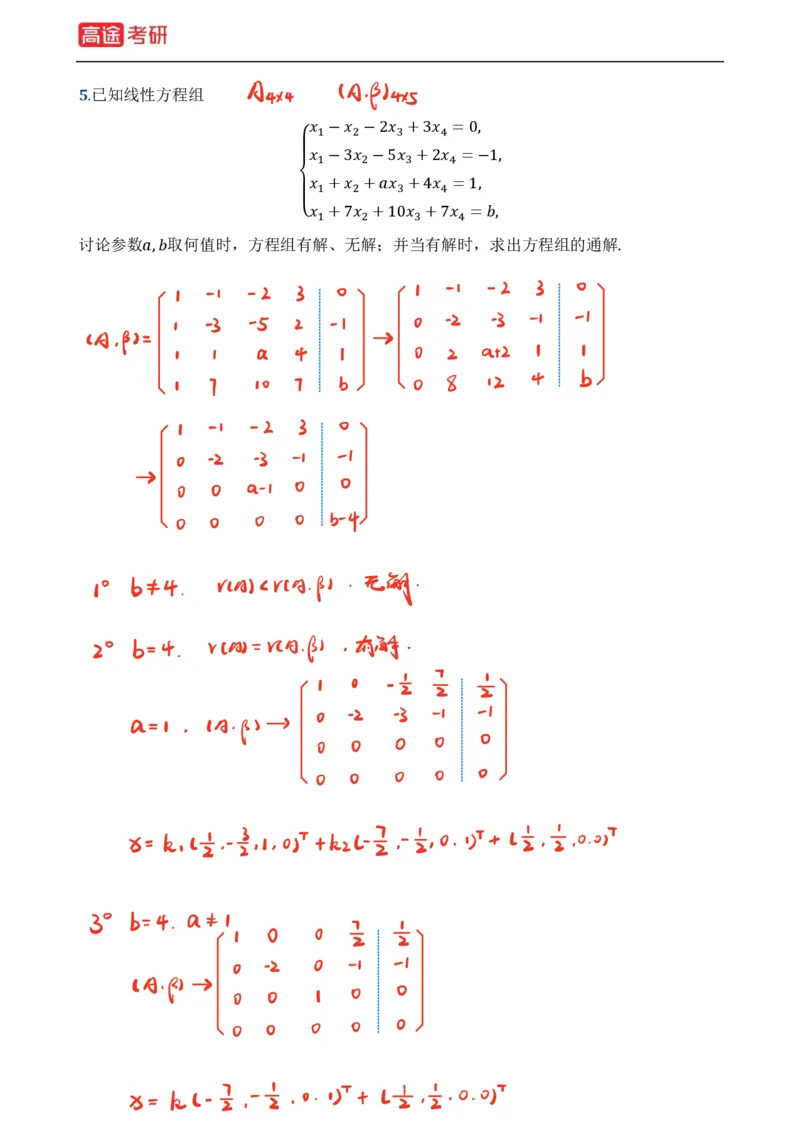 高途考研
5.已知线性方程组 A4×4 (A.β)4×5
x₁−x₂−2x₃+3x₄=0,
x₁−3x₂−5x₃+2x₄=−1,
x₁+x₂+ax₃+4x₄=1,
x₁+7x₂+10x₃+7x₄=b,
讨论参数a,b取何值时，方程组有解、无解；并当有解时，求出方程组的通解.
1 -1 -2 3 0 1 -1 -2 3 0
1 -3 -5 2 -1 0 -2 -3 -1 -1
(A.β)= →
1 1 a 4 1 0 2 a+2 1 1
1 7 10 7 b 0 8 12 4 b
1 -1 -2 3 0
0 -2 -3 -1 -1
→
0 0 a-1 0 0
0 0 0 0 b-4
1° b≠4. r(A)<r(A.β). 无解.
2° b=4. r(A)=r(A.β), 有解.
1 0 -1/2 7/2 1/2
a=1, (A.β)→ 0 -2 -3 -1 -1
0 0 0 0 0
0 0 0 0 0
x=k₁(1/2,-3/2,1,0)ᵀ+k₂(-7/2,-1/2,0.1)ᵀ+(1/2,1/2,0.0)ᵀ
3° b=4. a≠1
1 0 0 7/2 1/2
0 -2 0 -1 -1
(A.β)→
0 0 1 0 0
0 0 0 0 0
x=k(-7/2,-1/2,0.1)ᵀ+(1/2,1/2,0.0)ᵀ